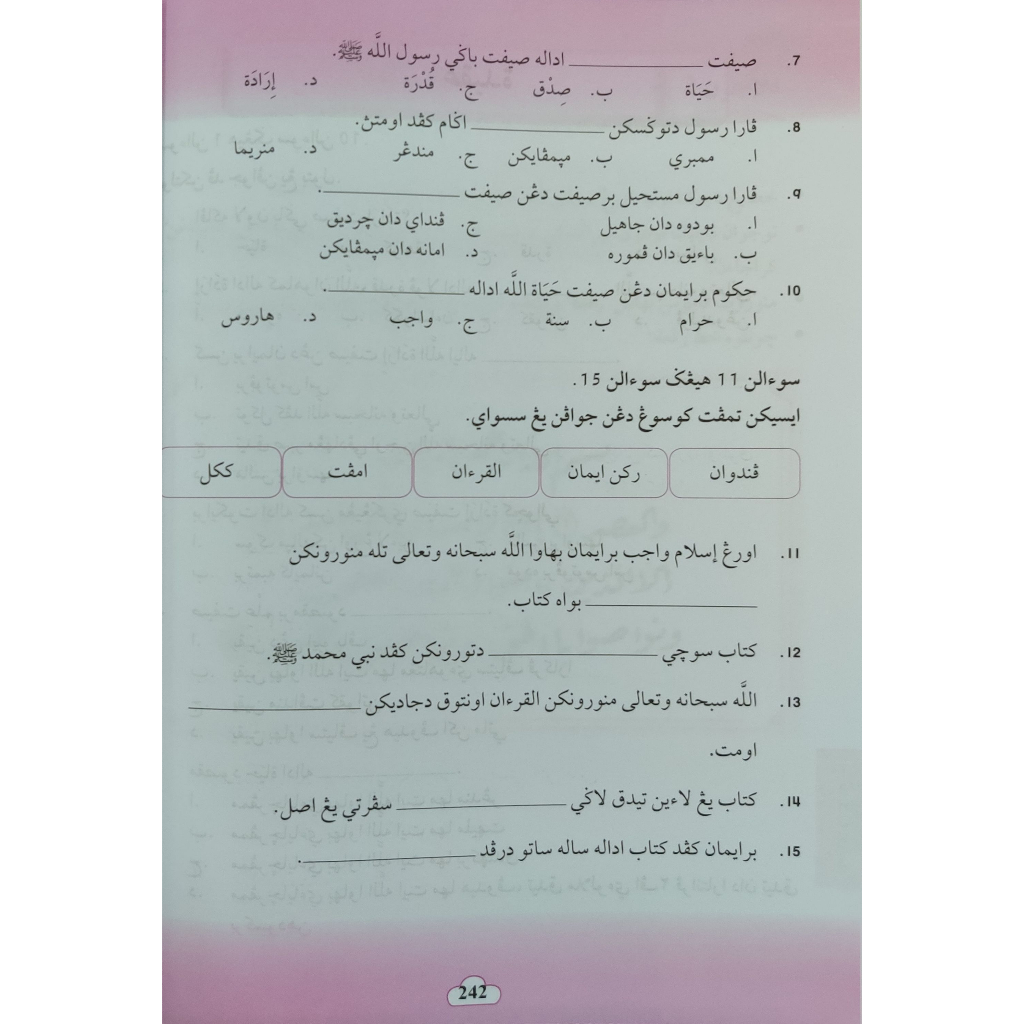 .7 صيفت __________ اداله صيفت باݢي رسول اللَّه ﷺ.
ا. حَيَاة ب. صِدْق ج. قُدْرَة د. إِرَادَة
.8 ڤارا رسول دتوݢسكن __________ اݢام كڤد اومتڽ.
ا. ممبري ب. مڽمڤايكن ج. مندڠر د. منريما
.9 ڤارا رسول مستحيل برصيفت دڠن صيفت __________.
ا. بودوه دان جاهيل ج. ڤنداي دان چرديق
ب. باءيق دان ڤموره د. امانه دان مڽمڤايكن
.10 حكوم برايمان دڠن صيفت حَيَاة اللَّه اداله __________.
ا. حرام ب. سنة ج. واجب د. هاروس
سوءالن 11 هيڠݢ سوءالن 15.
ايسيكن تمڤت كوسوڠ دڠن جواڤن يڠ سسواي.
ڤندوان ركن ايمان القرءان امڤت ككل
.11 اورڠ إسلام واجب برايمان بهاوا اللَّه سبحانه وتعالى تله منورونكن
__________ بواه كتاب.
.12 كتاب سوچي __________ دتورونكن كڤد نبي محمد ﷺ.
.13 اللَّه سبحانه وتعالى منورونكن القرءان اونتوق دجاديكن __________
اومت.
.14 كتاب يڠ لاءين تيدق لاݢي __________ سڤرتي يڠ اصل.
.15 برايمان كڤد كتاب اداله ساله ساتو درڤد __________.
242